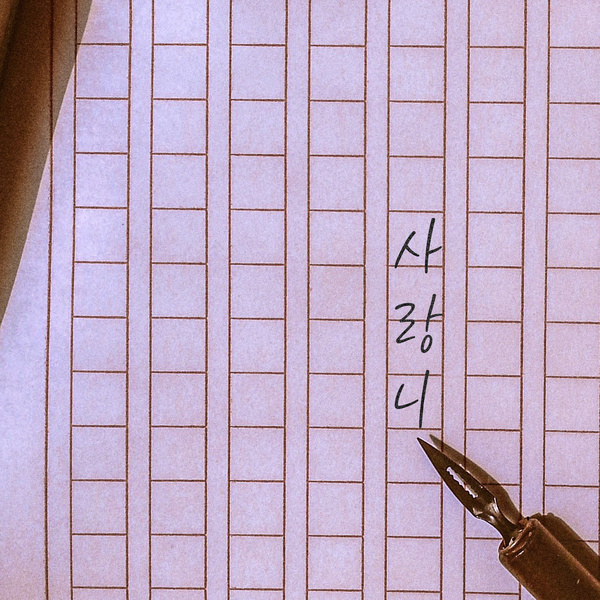 사랑니